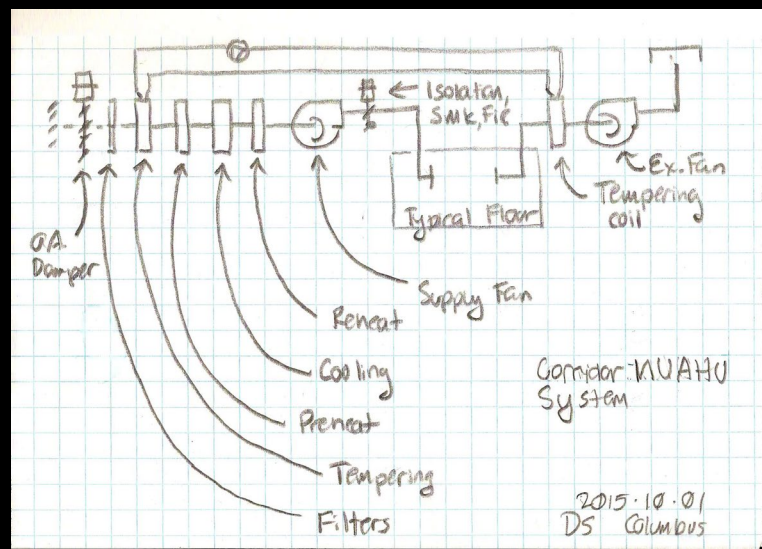 Isolaton,
Smk, Fire
Ex. Fan
Tempering
coil
Typical Floor
O.A.
Damper
Supply Fan
Reheat
Cooling
Preheat
Tempering
Filters
Corridor MUAHU
System
2015.10.01
DS Columbus